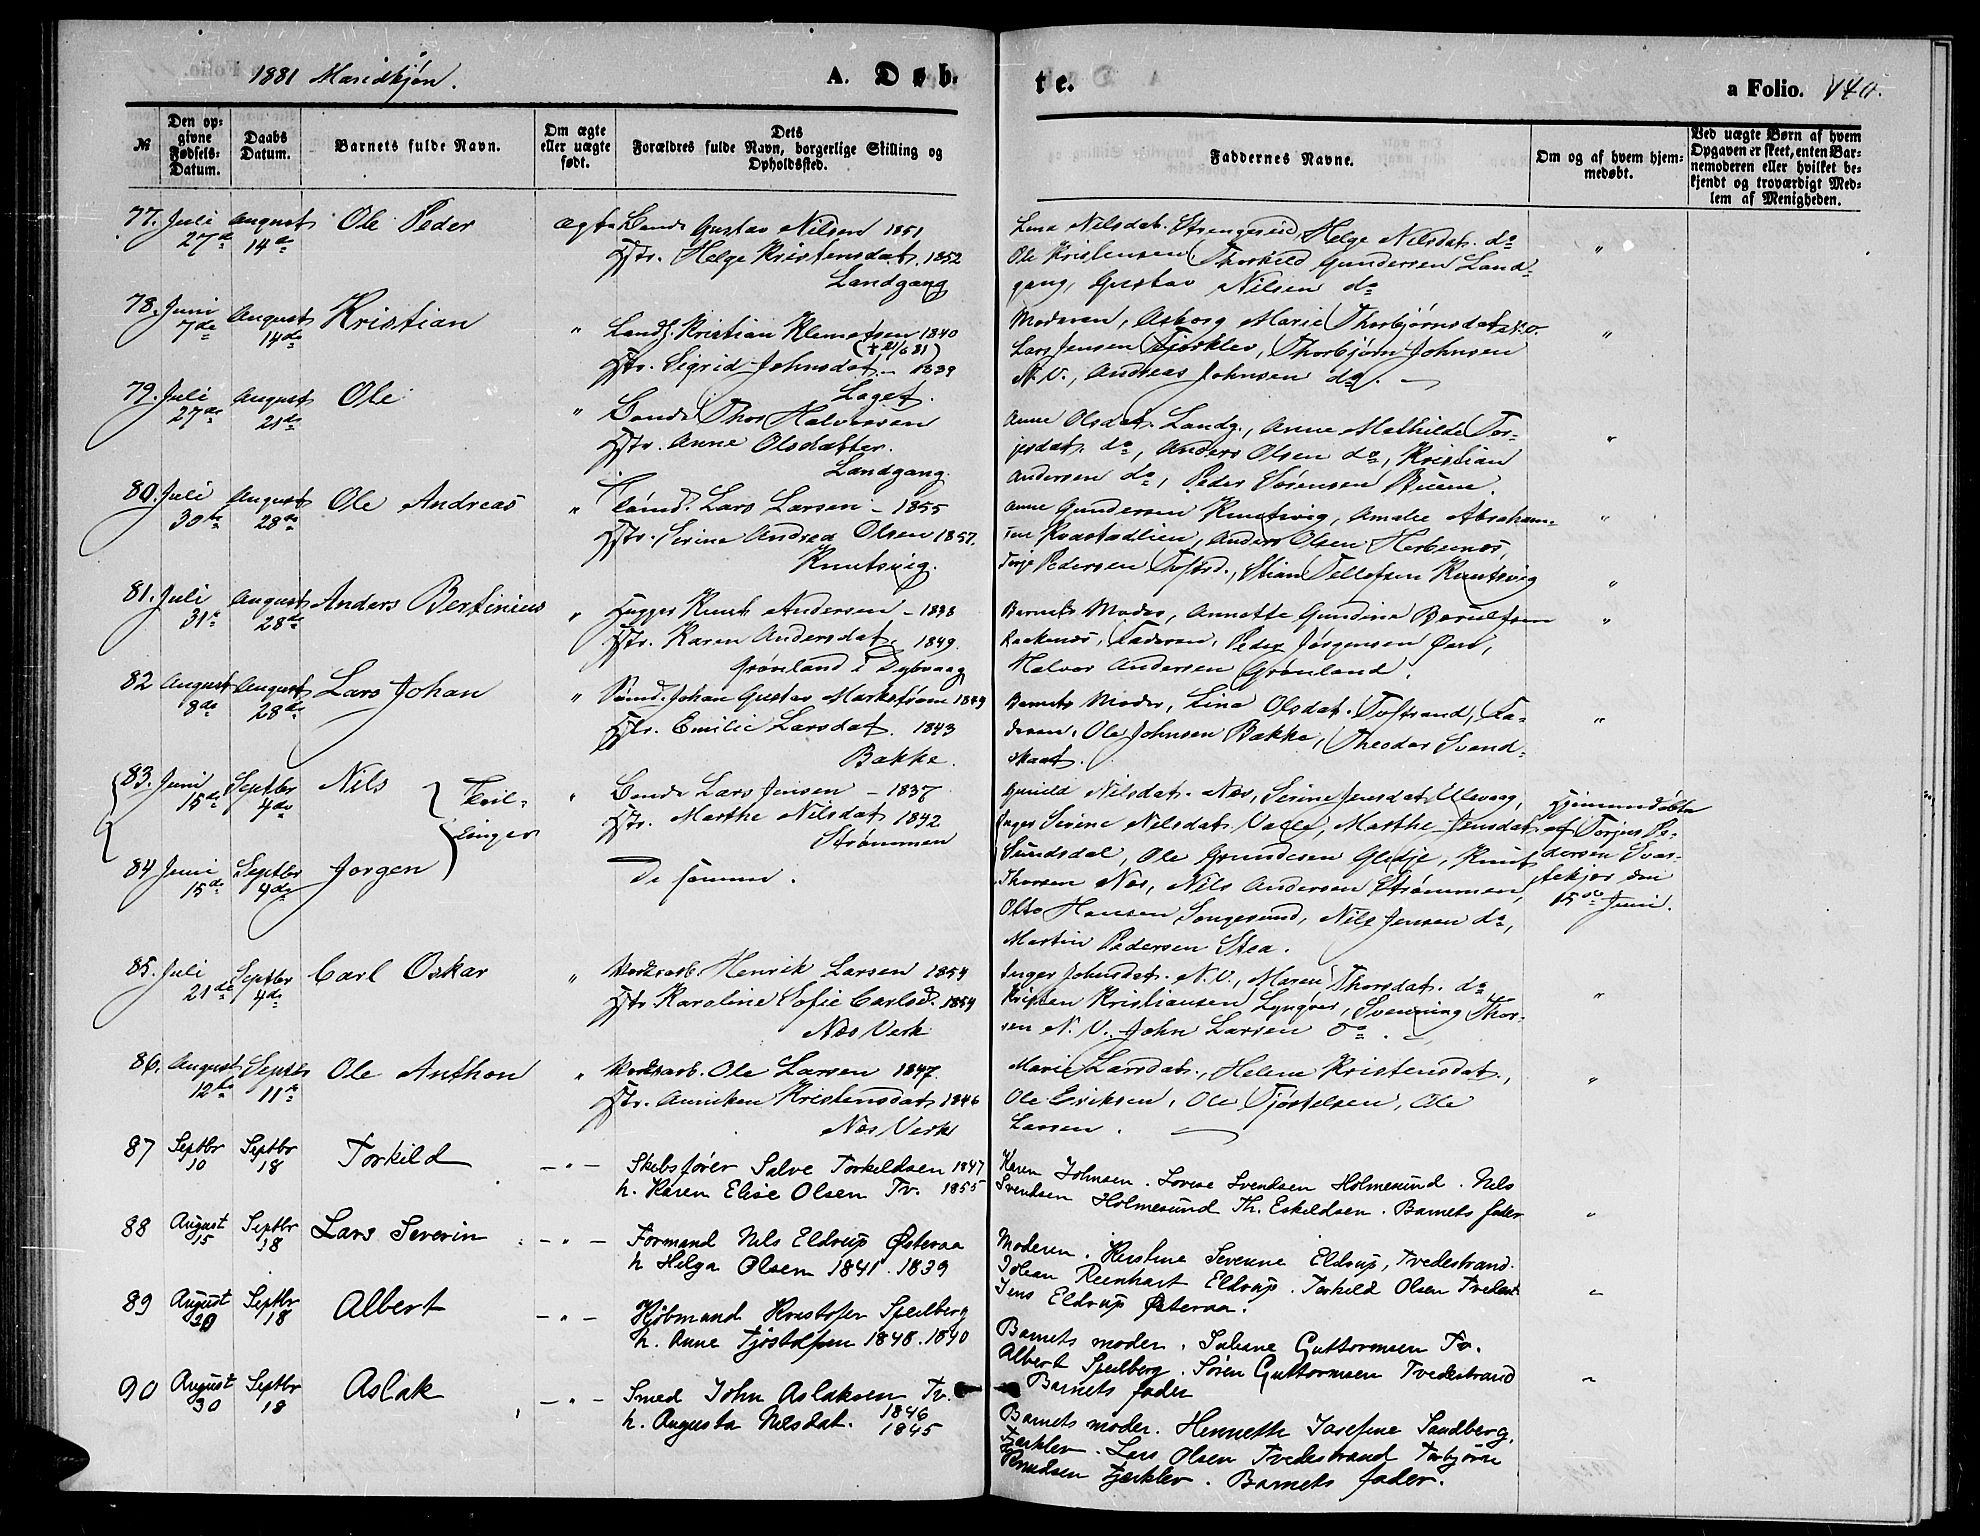 1881 Mandkjøn.
A. Døb-
te.
a Folio. 140.
№
Den op-
givne
Fødsels-
Datum.
Daabs
Datum.
Barnets fulde Navn.
Om ægte
eller uægte
født.
Dets
Forældres fulde Navn, borgerlige Stilling og
Opholdssted.
Faddernes Navne.
Om og af hvem hjem-
medøbt.
Ved uægte Børn af hvem
Opgaven er skeet, enten Bar-
nemoderen eller hvilket be-
kjendt og troværdigt Med-
lem af Menigheden.
77. Juli 27de August 14de Ole Peder ægte Bonde Gustav Nilsen 1851
Hstr. Helge Kristensdat. 1852
Landgang
Lena Nilsdat. Strengereid, Helge Nilsdat. do
Ole Kristensen, Thorkild Gundersen Land-
gang, Gustav Nilsen do
"
78. Juni 7de August 14de Kristian " Landh. Kristian Klemetsen 1840
(† 21/6 81)
Hstr. Sigrid Johnsdat. - 1839
Laget.
Moderen, Asborg Marie Thorbjørnsdat.
Lars Jensen Fjærklev, Thorbjørn Johnsen
N. V., Andreas Johnsen do.
"
79. Juli 27de August 21de Ole " Bonde Thor Halvorsen
Hstr. Anne Olsdatter.
Landgang.
Anne Olsdat. Landg., Anne Mathilde Tor-
jesdat. do, Anders Olsen do, Kristian
Andersen do, Peder Sørensen Buene.
"
80. Juli 30te August 28de Ole Andreas " Tømd. Lars Larsen - 1855
Hstr. Serine Andrea Olsen 1857.
Knutsvig.
Anne Gundersen Knutsvig, Amalie Abraham-
sen Kvastadlien, Anders Olsen Hesbernæs,
Terje Pedersen Tofstd., Stian Tellefsen Knutsvig
"
81. Juli 31te August 28de Anders Bertinius " Hugger Knut Andersen - 1838
Hstr. Karen Andersdat. 1849.
Grønland i Dybvaag
Barnets Moder, Annette Gundine Berulfsen
Laskenæs, Faderen, Peder Jørgensen Øen,
Halvor Andersen Grønland.
"
82 August 8de August 28de Lars Johan " Sømd. Johan Gustav Markstrøm 1849
Hstr. Emilie Larsdat. 1843
Bakke.
Barnets Moder, Lina Olsdat. Tofstrand, Fa-
deren, Ole Johnsen Bakke, Theodor Svend-
skaat.
"
83. Juni 15de Septbr 4de Nils Tvil- " Bonde Lars Jensen - 1837
linger Hstr. Marthe Nilsdat 1842
Strømmen
Gunild Nilsdat. Næs, Serine Jensdat. Ulevaag,
Inger Serine Nilsdat. Valle, Marthe Jensdat
Sundsdal, Ole Gundesen Gledje, Knut
Thorsen Næs, Nils Andersen Strømmen,
Otto Hansen Songesund, Nils Jensen do,
Martin Pedersen Stea.
Hjemmedøbte
af Torjus Pe-
dersen Svar-
tekjær den
15de Juni.
84 Juni 15de Septbr 4de Jørgen De samme.
85. Juli 21de Septbr 4de Carl Oskar " Værksarb. Henrik Larsen 1854
Hstr. Karoline Sofie Carlsd. 1854
Næs Verk
Inger Johnsdat. N. V., Maren Thorsdat. do
Kristen Kristiansen Lyngver, Svenning Thor-
sen N. V. John Larsen do.
"
86. August 12te Septbr 11te Ole Anthon " Værksarb. Ole Larsen 1847.
Hstr. Anniken Kristensdat 1846
Næs Verk
Marie Larsdat., Helene Kristensdat.,
Ole Eriksen, Ole Tjøstelsen, Ole
Larsen.
"
87 Septbr 10 Septbr 18 Torkild - " - Skibsfører Salve Torkildsen 1847
h. Karen Elise Olsen Tv. 1855
Karen Johnsen. Lovise Svendsen Holmesund. Nils
Svendsen Holmesund Th. Eskildsen. Barnets fader
"
88 August 15 Septbr 18 Lars Severin - " - Formand Nils Eldrup Østeraa
h Helga Olsen 1841. 1839
Moderen. Kirstine Severine Eldrup, Tvedestrand.
Johan Reinhart Eldrup. Torkild Olsen Tvedest.
Jens Eldrup Østeraa.
"
89 August 20 Septbr 18 Albert - " - Kjøbmand Kristofer Speilberg
h. Anne Tjøstolfsen 1848. 1840
Barnets moder. Juliane Guttormsen Tv.
Albert Speilberg. Søren Guttormsen Tvedestrand
Barnets fader
"
90 August 30 Septbr 18 Aslak - " - Smed John Aslaksen Tv.
h. Augusta Nilsdat. 1846
1845
Barnets moder. Hennette Josefine Sandberg.
Fjærklev. Lars Olsen Tvedestrand Torbjørn
Knudsen Fjærklev. Barnets fader.